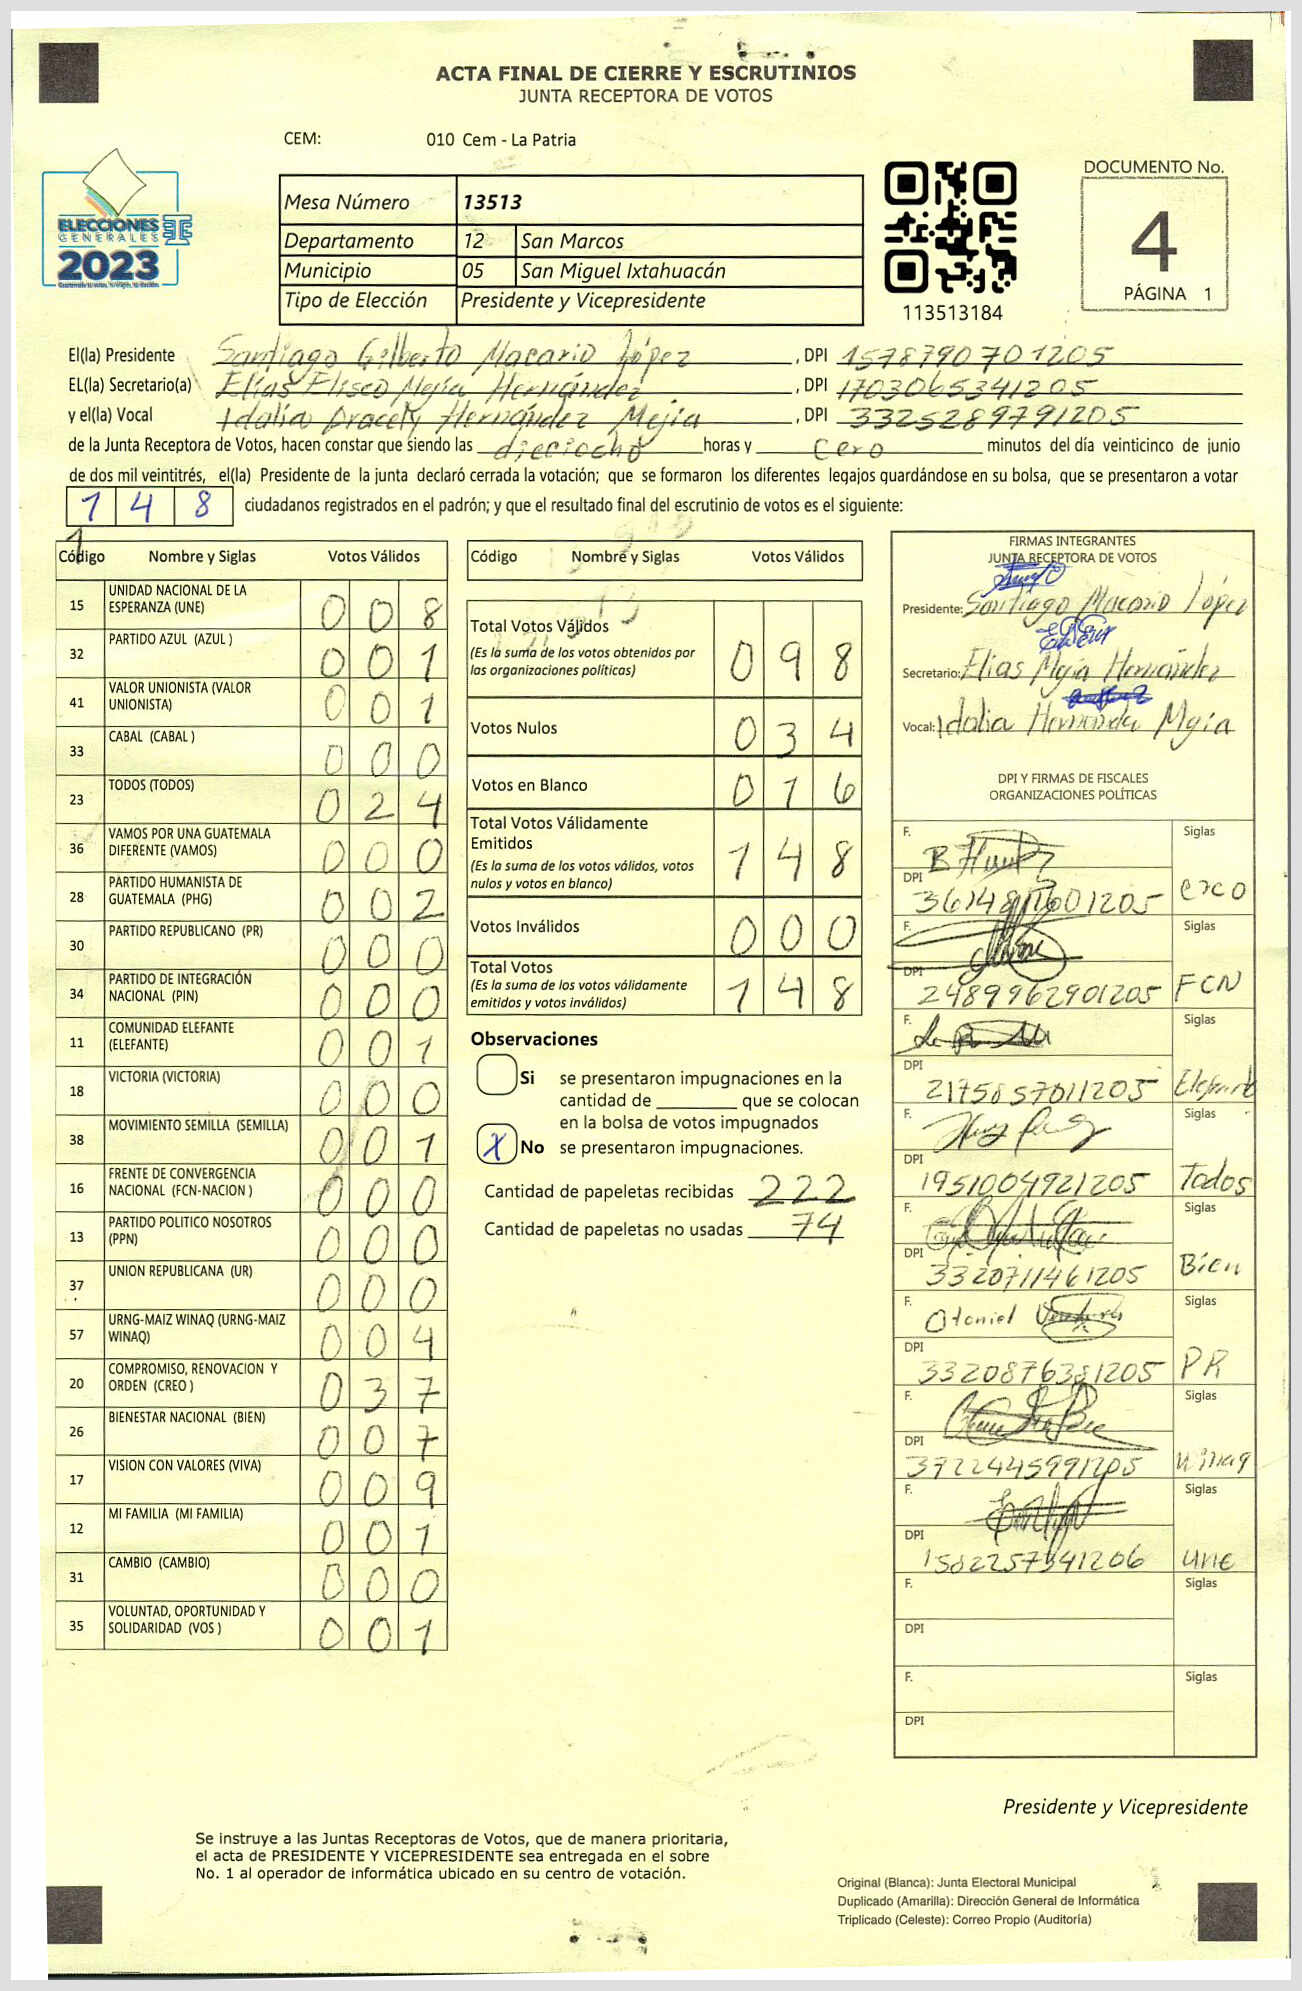 ACTA FINAL DE CIERRE Y ESCRUTINIOS
JUNTA RECEPTORA DE VOTOS
CEM: 010 Cem - La Patria
ELECCIONES
GENERALES
2023
Mesa Número 13513
Departamento 12 San Marcos
Municipio 05 San Miguel Ixtahuacán
Tipo de Elección Presidente y Vicepresidente
113513184
DOCUMENTO No.
4
PÁGINA 1
El(la) Presidente Santiago Gilberto Macario López , DPI 1578790701205
EL(la) Secretario(a) Elías Eliseo Mejía Hernández , DPI 1703065341205
y el(la) Vocal Idalia Aracely Hernández Mejía , DPI 3325289791205
de la Junta Receptora de Votos, hacen constar que siendo las dieciocho horas y cero minutos del día veinticinco de junio
de dos mil veintitrés, el(la) Presidente de la junta declaró cerrada la votación; que se formaron los diferentes legajos quardándose en su bolsa, que se presentaron a votar
1 4 8 ciudadanos registrados en el padrón; y que el resultado final del escrutinio de votos es el siguiente:
Código Nombre y Siglas Votos Válidos
15 UNIDAD NACIONAL DE LA ESPERANZA (UNE) 0 0 8
32 PARTIDO AZUL (AZUL ) 0 0 1
41 VALOR UNIONISTA (VALOR UNIONISTA) 0 0 1
33 CABAL (CABAL ) 0 0 0
23 TODOS (TODOS) 0 2 4
36 VAMOS POR UNA GUATEMALA DIFERENTE (VAMOS) 0 0 0
28 PARTIDO HUMANISTA DE GUATEMALA (PHG) 0 0 2
30 PARTIDO REPUBLICANO (PR) 0 0 0
34 PARTIDO DE INTEGRACIÓN NACIONAL (PIN) 0 0 0
11 COMUNIDAD ELEFANTE (ELEFANTE) 0 0 1
18 VICTORIA (VICTORIA) 0 0 0
38 MOVIMIENTO SEMILLA (SEMILLA) 0 0 1
16 FRENTE DE CONVERGENCIA NACIONAL (FCN-NACION ) 0 0 0
13 PARTIDO POLITICO NOSOTROS (PPN) 0 0 0
37 UNION REPUBLICANA (UR) 0 0 0
57 URNG-MAIZ WINAQ (URNG-MAIZ WINAQ) 0 0 4
20 COMPROMISO, RENOVACION Y ORDEN (CREO ) 0 3 7
26 BIENESTAR NACIONAL (BIEN) 0 0 7
17 VISION CON VALORES (VIVA) 0 0 9
12 MI FAMILIA (MI FAMILIA) 0 0 1
31 CAMBIO (CAMBIO) 0 0 0
35 VOLUNTAD, OPORTUNIDAD Y SOLIDARIDAD (VOS ) 0 0 1
Código Nombre y Siglas Votos Válidos
Total Votos Válidos 0 9 8
(Es la suma de los votos obtenidos por
las organizaciones políticas)
Votos Nulos 0 3 4
Votos en Blanco 0 1 6
Total Votos Válidamente
Emitidos 1 4 8
(Es la suma de los votos válidos, votos
nulos y votos en blanco)
Votos Inválidos 0 0 0
Total Votos 1 4 8
(Es la suma de los votos válidamente
emitidos y votos inválidos)
Observaciones
Si se presentaron impugnaciones en la
cantidad de ________ que se colocan
en la bolsa de votos impugnados
X No se presentaron impugnaciones.
Cantidad de papeletas recibidas 222
Cantidad de papeletas no usadas 74
FIRMAS INTEGRANTES
JUNTA RECEPTORA DE VOTOS
Presidente: Santiago Macario López
Secretario: Elias Mejía Hernández
Vocal: Idalia Hernández Mejía
DPI Y FIRMAS DE FISCALES
ORGANIZACIONES POLÍTICAS
F. Siglas
DPI
F. Siglas
DPI 2489962901205 FCN
F. Siglas
DPI 2175857011205 Elefante
F. Siglas
DPI 1951004921205 Todos
F. Siglas
DPI 3320711461205 Bien
F. Otoniel Siglas
DPI 3320876381205 PR
F. Siglas
DPI 3722445991205 Winaq
F. Siglas
DPI 1582257341206 UNE
F. Siglas
DPI
F. Siglas
DPI
Presidente y Vicepresidente
Se instruye a las Juntas Receptoras de Votos, que de manera prioritaria,
el acta de PRESIDENTE Y VICEPRESIDENTE sea entregada en el sobre
No. 1 al operador de informática ubicado en su centro de votación.
Original (Blanca): Junta Electoral Municipal
Duplicado (Amarilla): Dirección General de Informática
Triplicado (Celeste): Correo Propio (Auditoría)